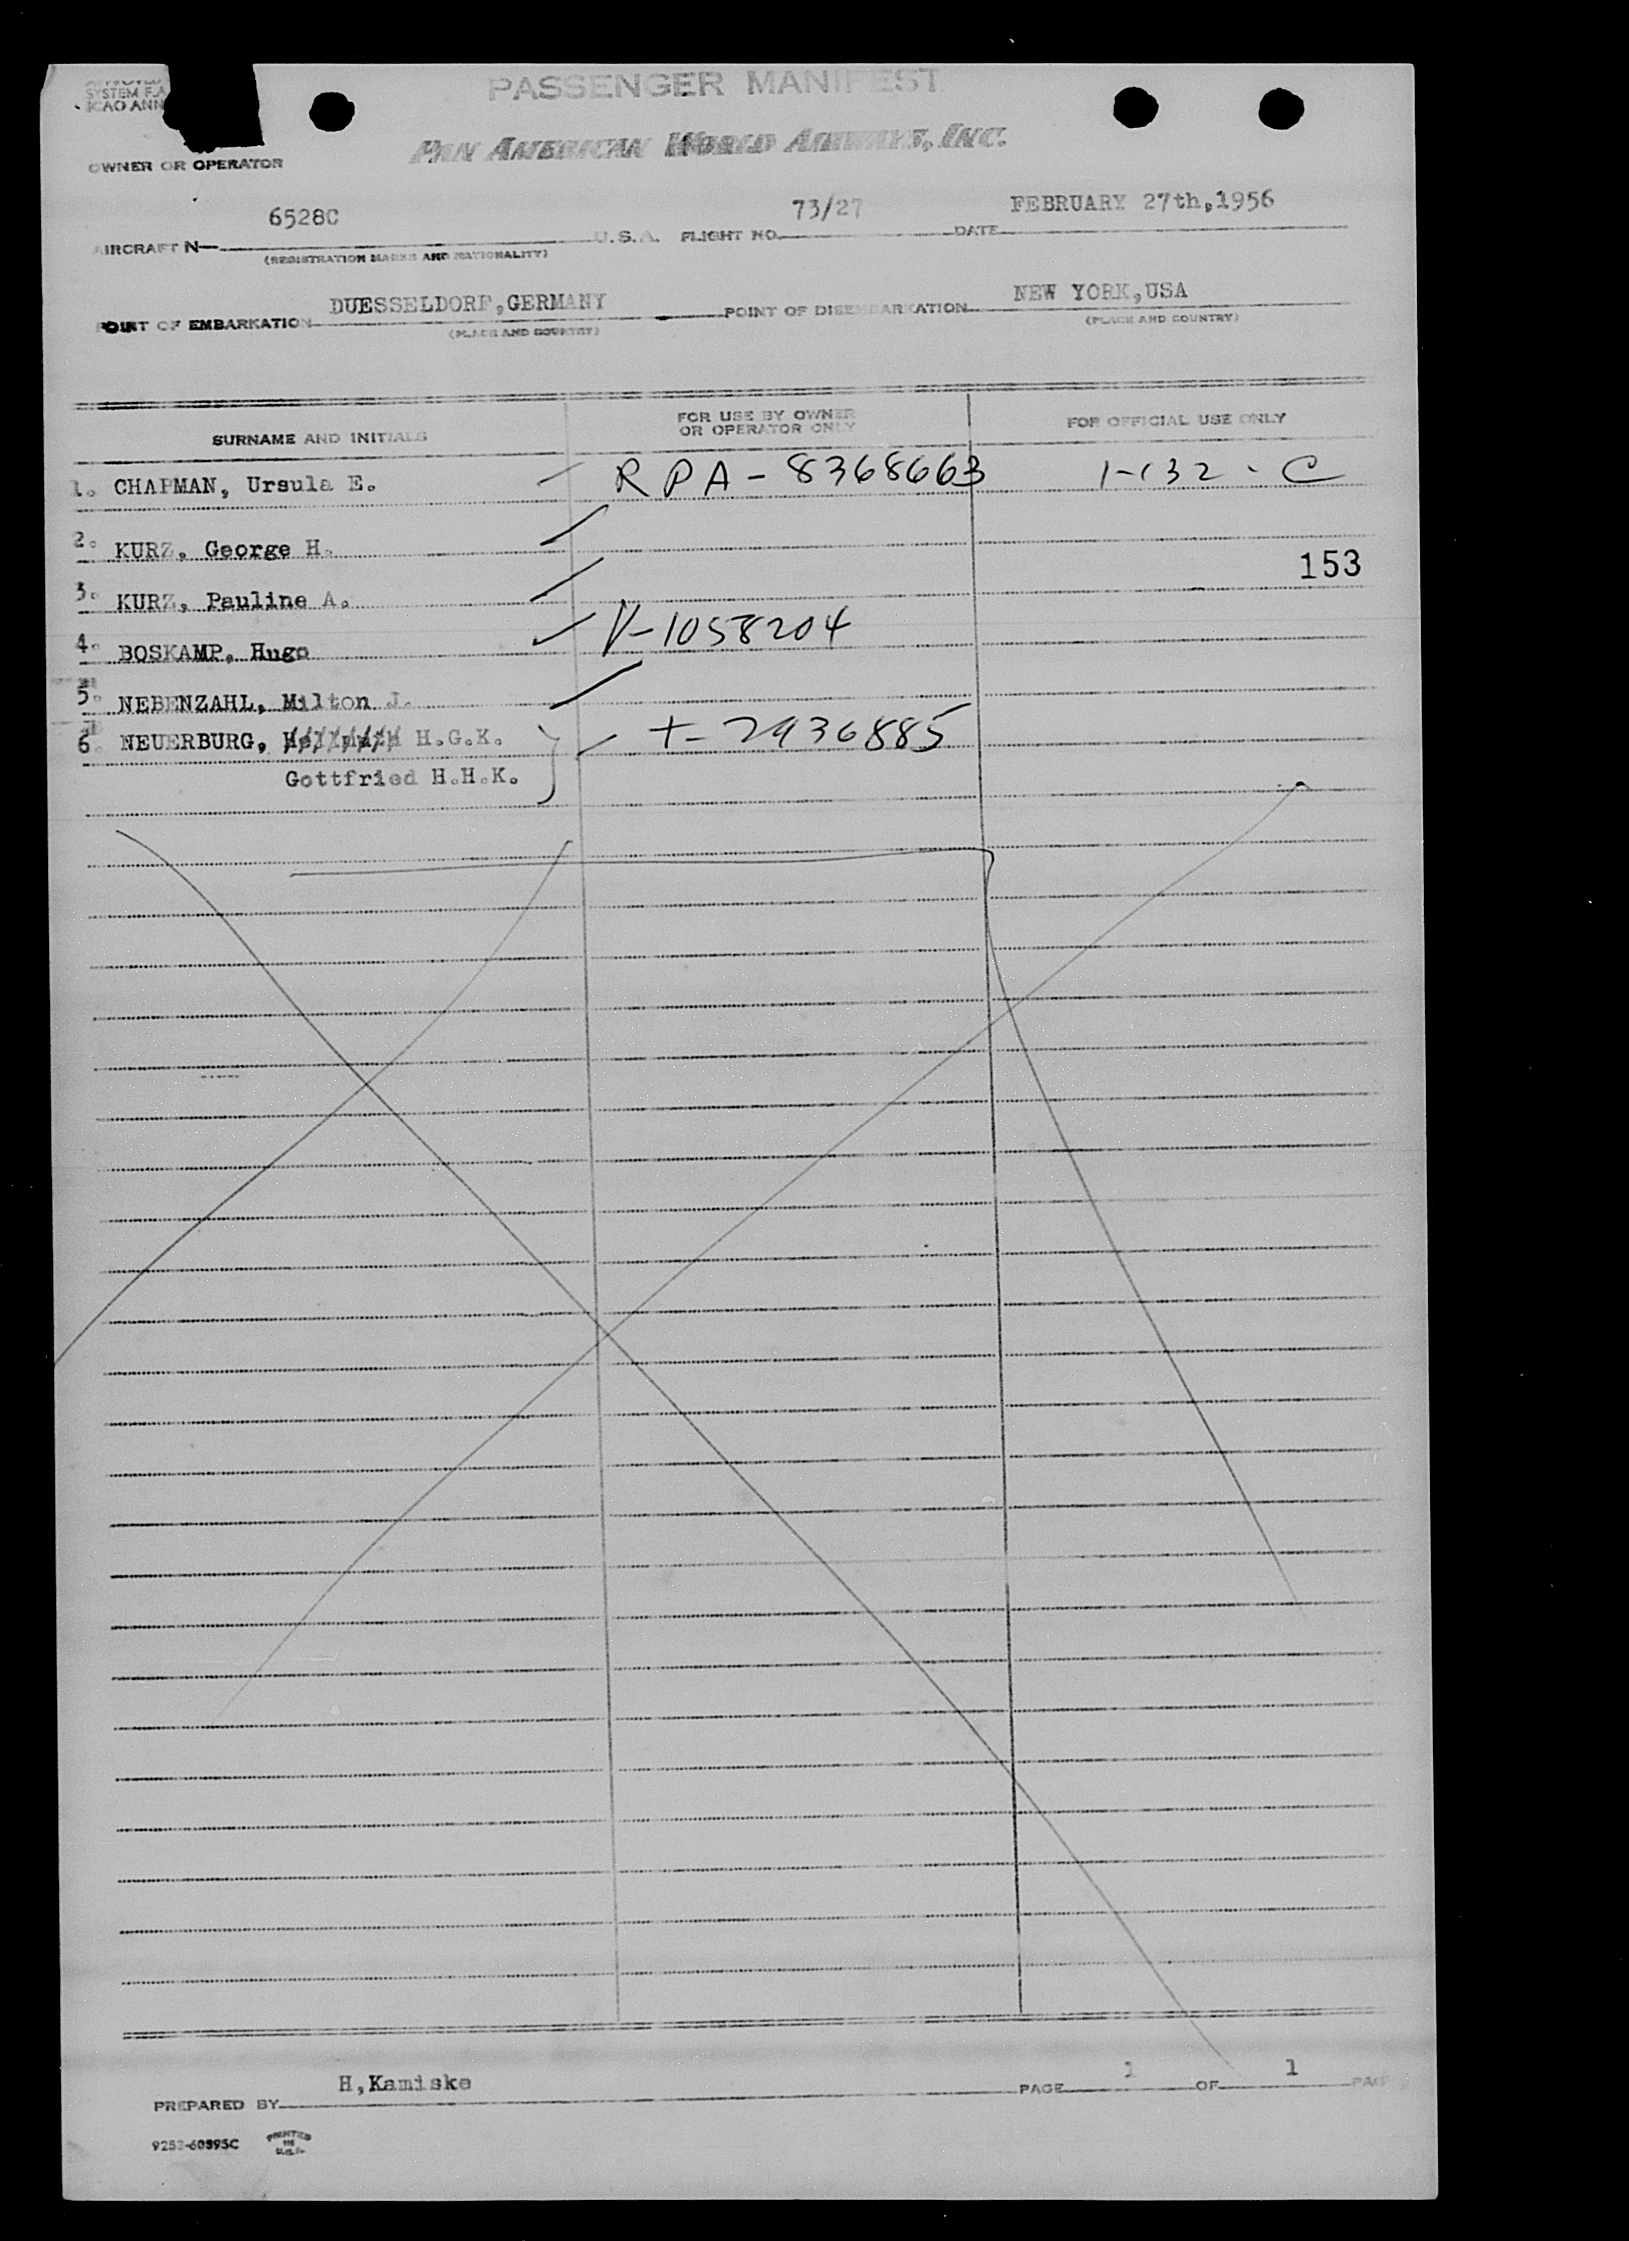 SYSTEM F.A
ICAO ANN
PASSENGER MANIFEST
PAN AMERICAN WORLD AIRWAYS, INC.
OWNER OR OPERATOR
6528C 73/27 FEBRUARY 27th,1956
AIRCRAFT N— U.S.A. FLIGHT NO. DATE
(REGISTRATION MARKS AND NATIONALITY)
DUESSELDORF,GERMANY NEW YORK,USA
POINT OF EMBARKATION POINT OF DISEMBARKATION
(PLACE AND COUNTRY) (PLACE AND COUNTRY)
SURNAME AND INITIALS FOR USE BY OWNER OR OPERATOR ONLY FOR OFFICIAL USE ONLY
1. CHAPMAN, Ursula E. RPA-8368663 1-132-C
2. KURZ, George H.
153
3. KURZ, Pauline A.
4. BOSKAMP, Hugo V-1058204
5. NEBENZAHL, Milton J.
6. NEUERBURG, H.G.K. +-2936885
Gottfried H.H.K.
H,Kamiske 1 1
PREPARED BY PAGE OF PAGE
9253-60595C PRINTED IN U.S.A.